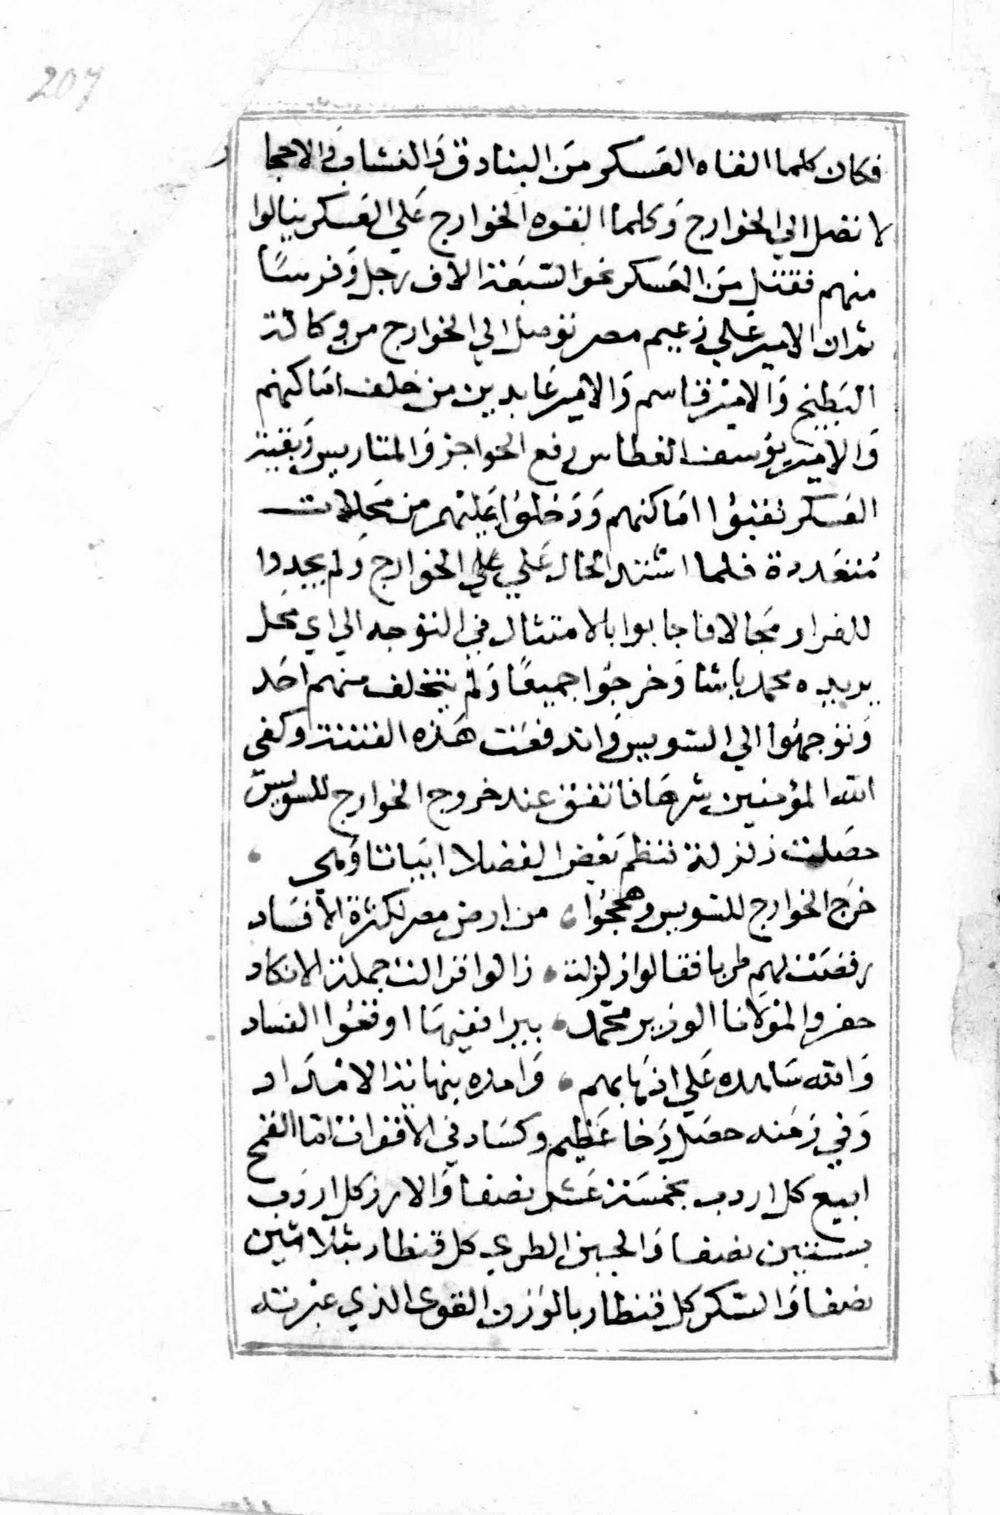 207
فكان كلما القاه العسكر من البنادق والنشاب والاحجار
لا تصل الي الخوارج وكلما القوه الخوارج علي العسكر ينالوا
منهم فقتل من العسكر نحو السبعة الاف رجل وفرسا
ثم ان الامير علي زعيم مصر توصل الي الخوارج من وكالة
البطيخ والامير قاسم والامير عابدين من خلف اماكنهم
والامير يوسف الغطاس رفع الحواجز والمتاريس وبقية
العسكر نقبوا اماكنهم ودخلوا عليهم من محلات
متعددة فلما اشتد الحال علي علي الخوارج ولم يجدوا
للفرار مجالا فاجابوا بالامتثال في التوجه الي اي محل
يريده محمد باشا وخرجوا جميعا ولم يتخلف منهم احد
وتوجهوا الي السويس واندفعت هذه الفتنة وكفي
الله المؤمنين شرها فاتفق عند خروج الخوارج للسويس
حصلت زلزلة فنظم بعض الفضلا ابياتا وهي
خرج الخوارج للسويس وهججوا من ارض مصر لكثرة الافساد
رقصت لهم طربا فقالوا زلزلت زالوا فزالت جملة الانكاد
حفروا لمولانا الوزير محمد بيرا ففيها اوقعوا الفساد
والله ساعده علي اذهابهم وامده بنهاية الامداد
وفي زمنه حصل رخا عظيم وكساد في الاقوات اما القمح
ابيع كل اردب بخمسة عشر نصفا والارز كل اردب
بستين نصفا والجبن الطري كل قنطار بثلاثين
نصفا والسكر كل قنطار بالوزن القوي الذي عبرته